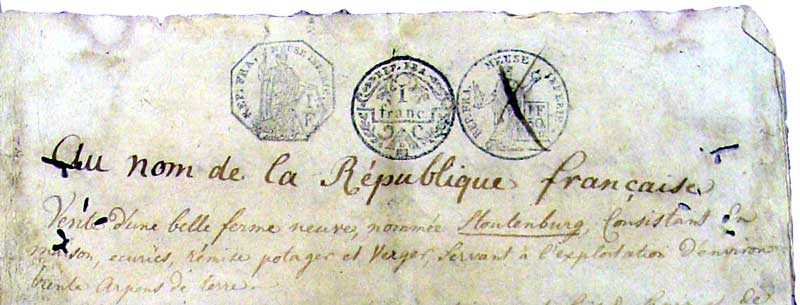 REP. FRA. MEUSE INFER.
1
F
REP. FRA.
1
franc.
REP. FRA. MEUSE INFERIE.
1F
50.
Au nom de la République française
Vente d'une belle ferme neuve, nommée Houtenburg, Consistant En
maison, ecuries, rémise potager et Verger, servant à l'exploitation d'environ
trente Arpens de terre.